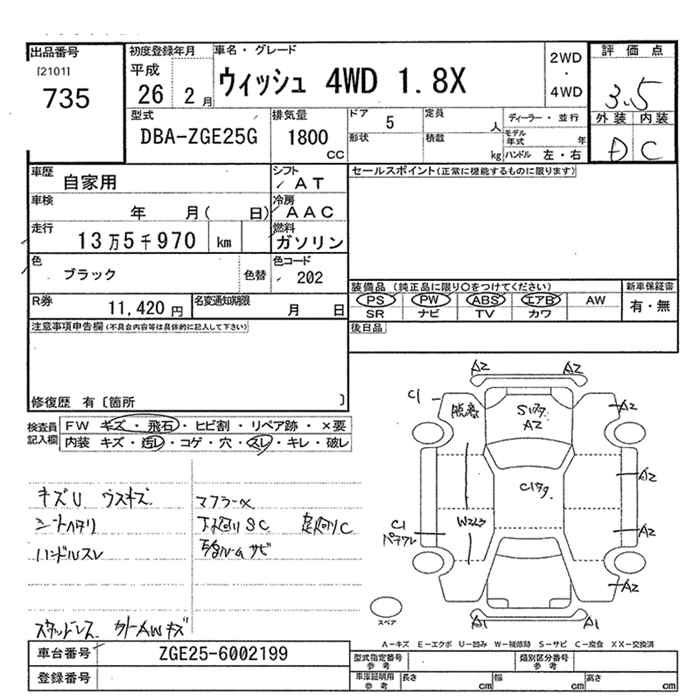 出品番号
[2101]
735
初度登録年月
平成
26 2 月
車名・グレード
ウィッシュ 4WD 1.8X
2WD
・
4WD
評価点
3.5
外装 内装
D C
型式
DBA-ZGE25G
排気量
1800
CC
ドア 5
形状
定員 人
積載 kg
ディーラー・並行
モデル年式 年
ハンドル 左・右
車歴
自家用
シフト
AT
車検
年 月( 日)
冷房
AAC
走行
13万5千970 km
燃料
ガソリン
色
ブラック
色替
色コード
202
R券
11,420 円
名変通知期限
月 日
セールスポイント(正常に機能するものに限る)
装備品 (純正品に限り○をつけてください)
PS PW ABS エアB AW
SR ナビ TV カワ
新車保証書
有・無
後日品
注意事項申告欄(不具合内容等は具体的に記入して下さい)
修復歴 有〔箇所 〕
検査員記入欄
FW キズ・飛石・ヒビ割・リペア跡・×要
内装 キズ・汚レ・コゲ・穴・スレ・キレ・破レ
キズU ウスキズ
シートヘタリ
ハンドルスレ
スタッドレス カトーAWキズ
マフラー
下廻りSC
ルームサビ
A2 A2
C1
A2
A2
S1
C1
A2
W2
C1
A2
A2
A1 A1
スペア
A-キズ E-エクボ U-凹み W-補修跡 S-サビ C-腐食 XX-交換済
車台番号
ZGE25-6002199
登録番号
型式指定番号
参考
類別区分番号
参考
車庫証明用
参考
長さ cm
幅 cm
高さ cm